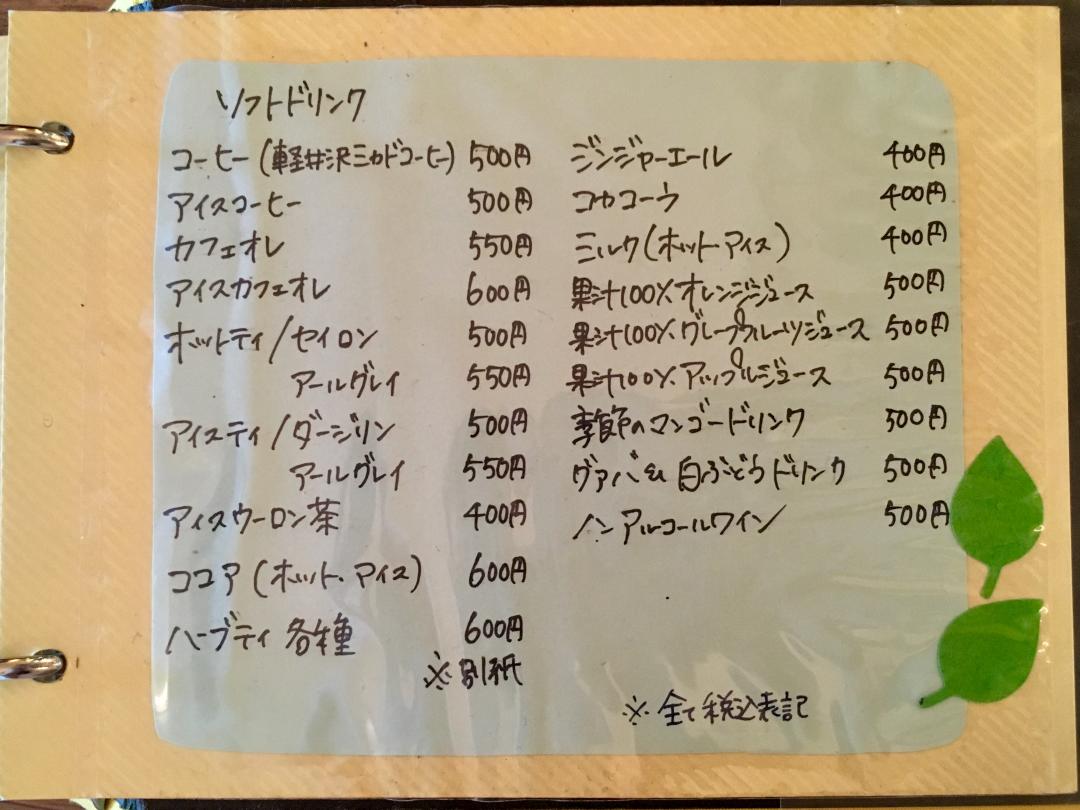 ソフトドリンク
コーヒー(軽井沢ミカドコーヒー) 500円
アイスコーヒー 500円
カフェオレ 550円
アイスカフェオレ 600円
ホットティ/セイロン 500円
アールグレイ 550円
アイスティ/ダージリン 500円
アールグレイ 550円
アイスウーロン茶 400円
ココア(ホット・アイス) 600円
ハーブティ 各種 600円
※別紙
ジンジャーエール 400円
コカコーラ 400円
ミルク(ホット・アイス) 400円
果汁100%オレンジジュース 500円
果汁100%グレープフルーツジュース 500円
果汁100%アップルジュース 500円
季節のマンゴードリンク 500円
グァバ&白ぶどうドリンク 500円
ノンアルコールワイン 500円
※全て税込表記